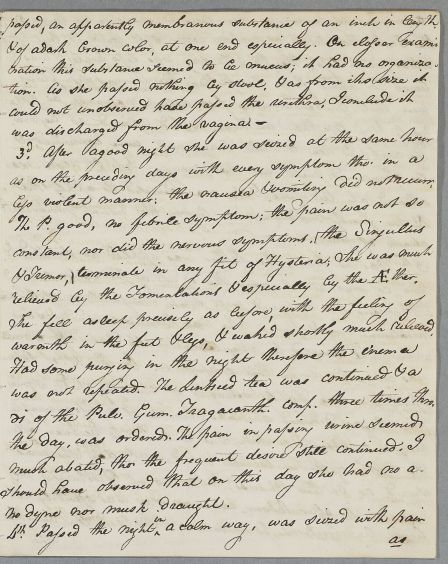 passed, an apparently membranous substance of an inch in length
& of a dark brown color, at one end especially. On closer exami
nation this substance seemed to be mucus; it had no organiza-
tion. As she passed nothing by stool, & as from its size it
could not unobserved have passed the urethra, I conclude it
was discharged from the vagina. —
3.d After a good night she was seized at the same hour
as on the preceding days with every symptom tho. in a
less violent manner: the nausea & vomiting did not recur;
the P. good, no febrile symptoms; the pain was not so
constant, nor did the nervous symptoms, (the Singultus
& Tremor,) terminate in any fit of Hysteria; She was much
relieved by the Fomentations & especially by the Æther.
She fell asleep precisely as before, with the feeling of
warmth in the feet & legs, & waked shortly much relieved
Had some purging in the night therefore the enema
was not repeated. The linseed tea was continued & a
of the Pulv. Gum. Tragacanth. comp. three times thro.
the day, was ordered. The pain in passing urine seemed
much abated, tho. the frequent desire still continued. I
should have observed that on this day she had no a-
nodyne nor musk draught.
4.th Passed the night in a calm way, was seized with pain
as